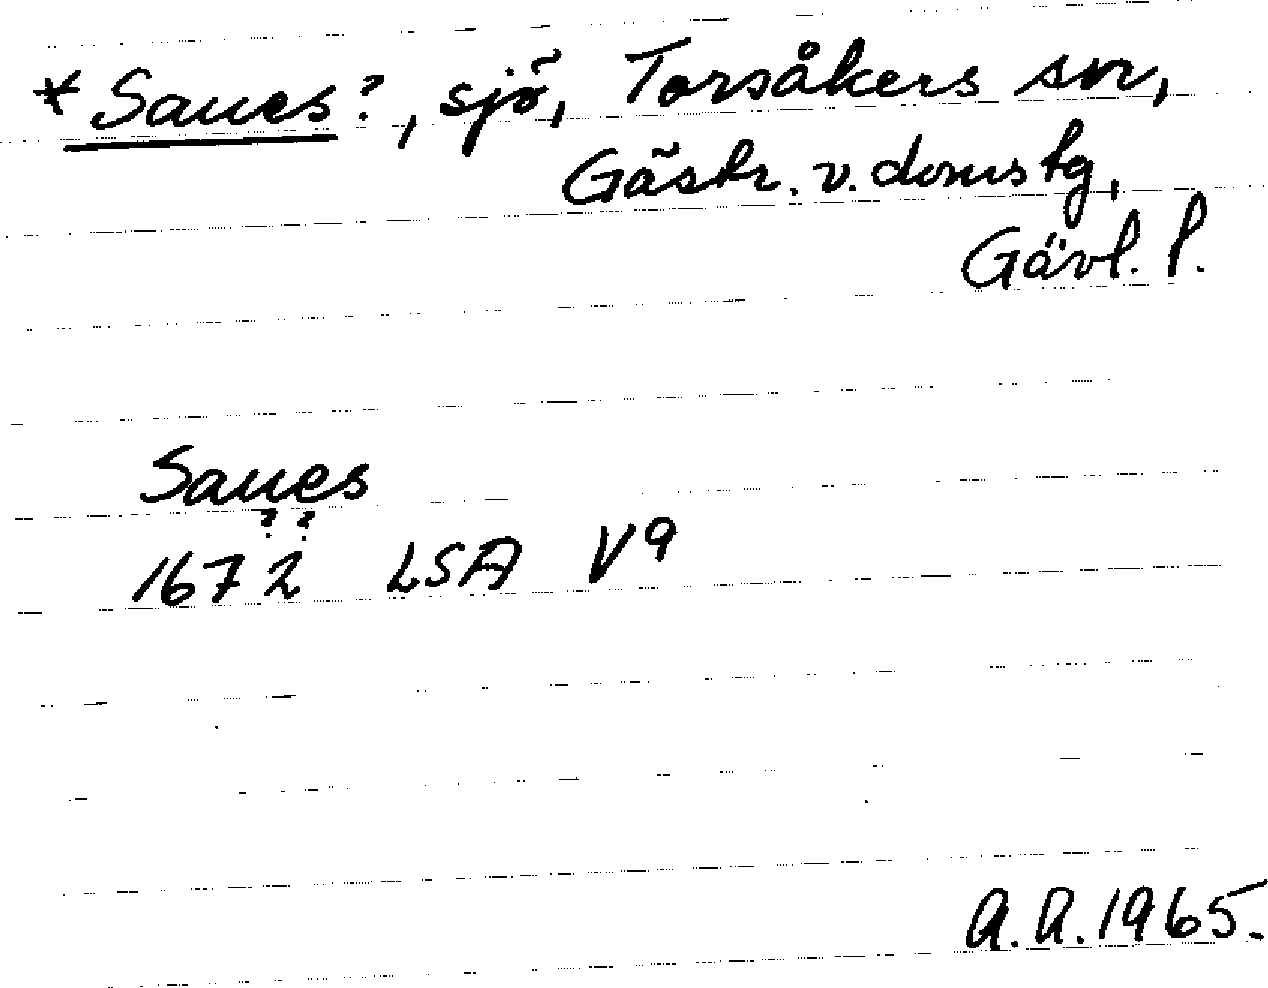 * Saues?, sjö, Torsåkers sn,
Gästr. v. doms tg,
Gävl. l.
Saues
? ?
1672 LSA V9
A.R. 1965.